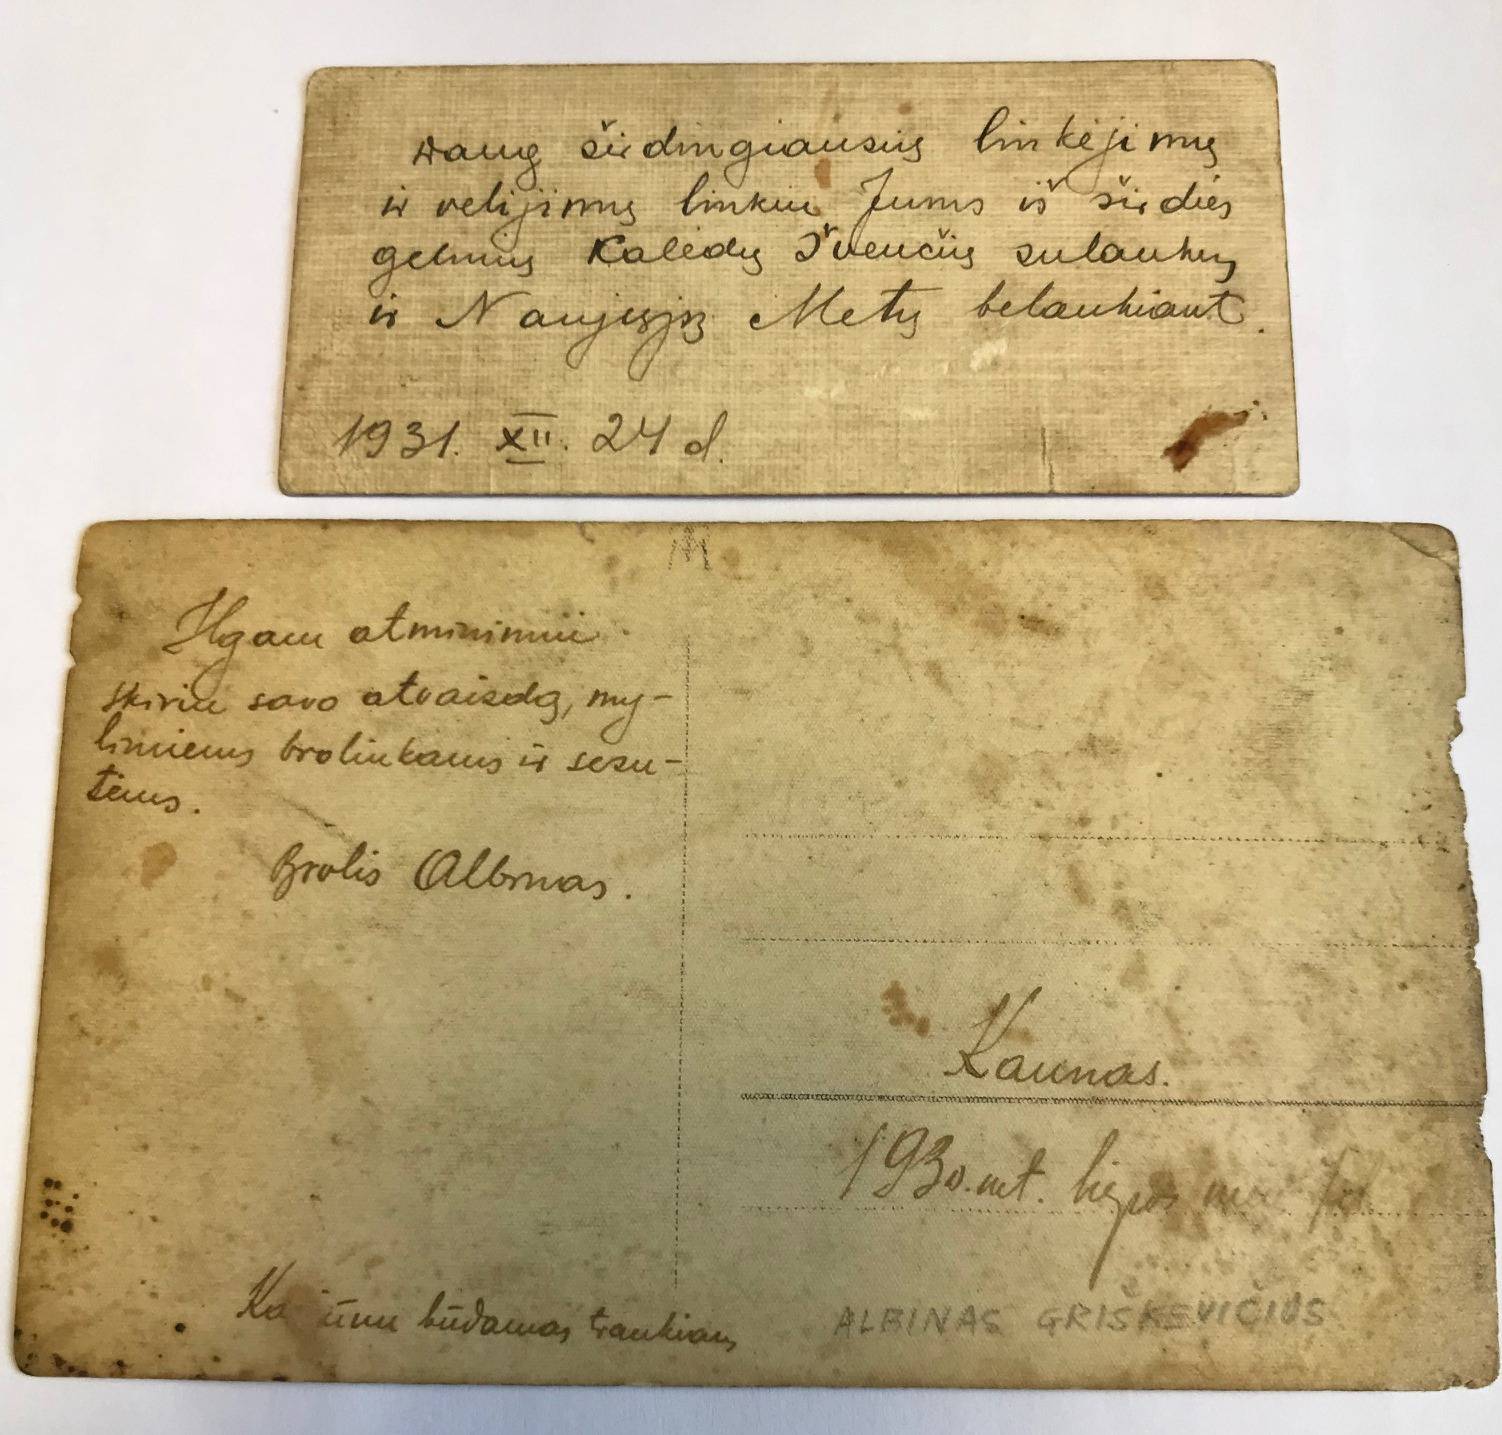 Daug širdingiausių linkėjimų
ir velijimų linkiu Jums iš širdies
gelmių Kalėdų Švenčių sulaukus
ir Naujųjų Metų belaukiant.
1931. XII. 24 d.
Ilgam atminimui
skiriu savo atvaizdą, my-
limiems broliukams ir sesu-
tėms.
Brolis Albinas.
Kaunas.
1930.mt. liepos
būdamas traukiaus
ALBINAS GRIŠKEVIČIUS